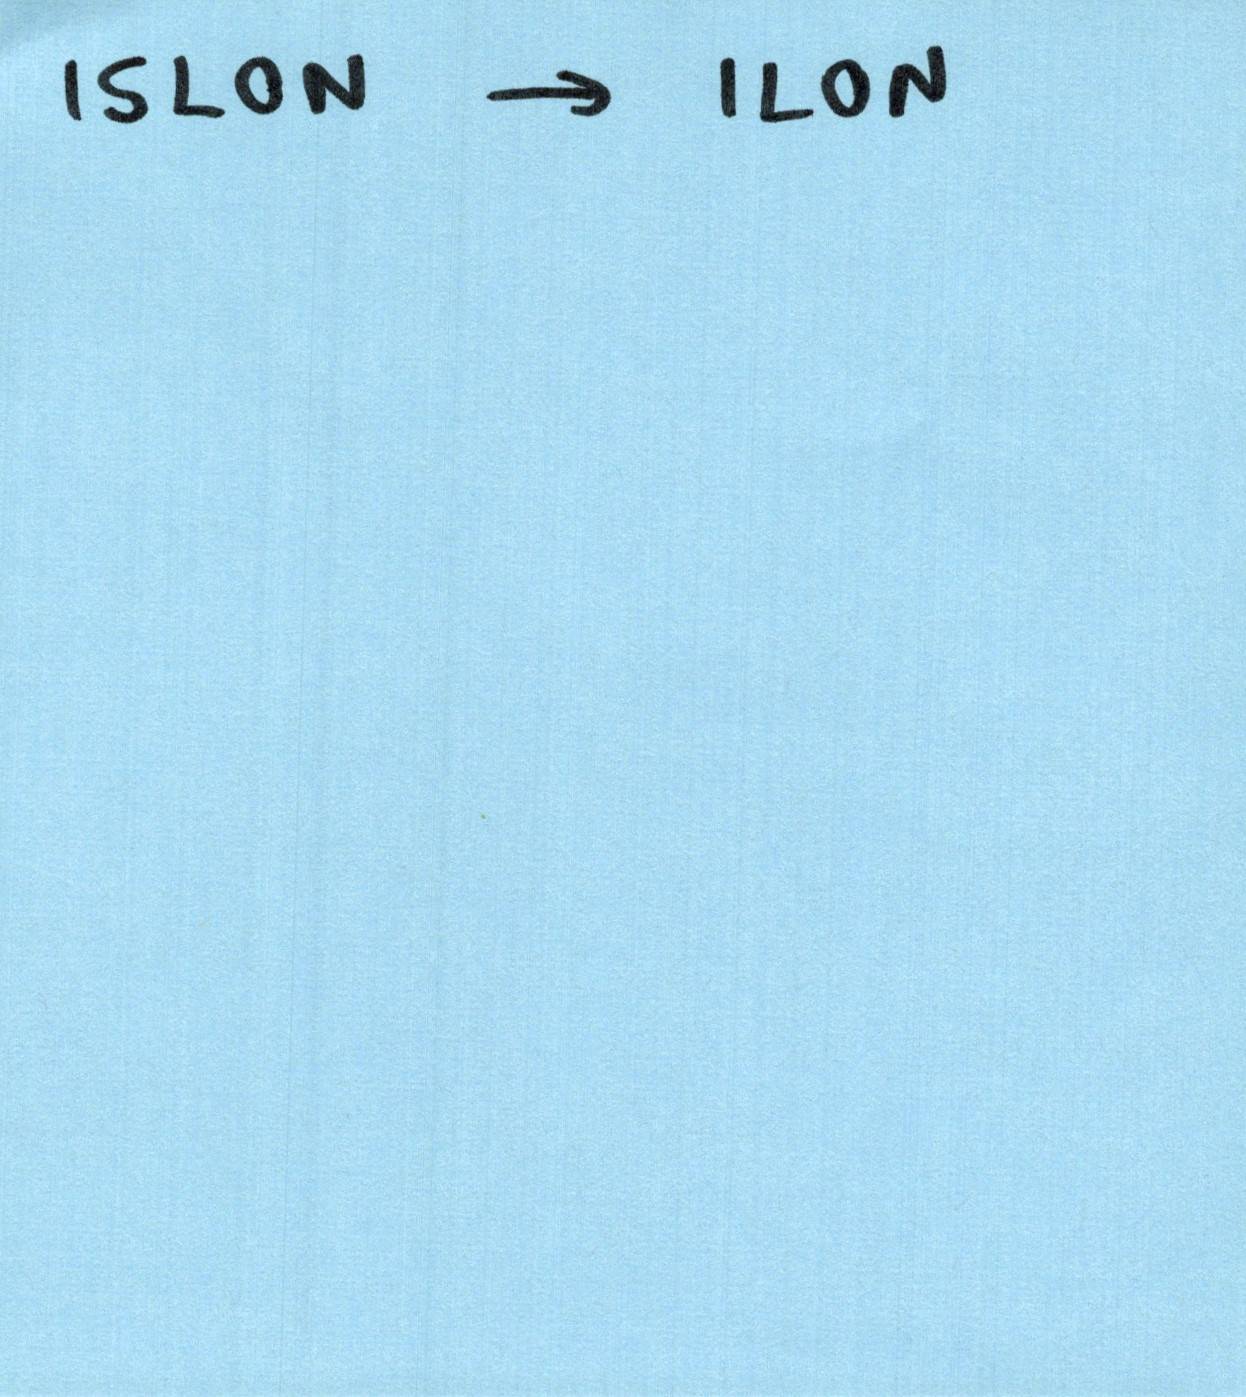 ISLON → ILON